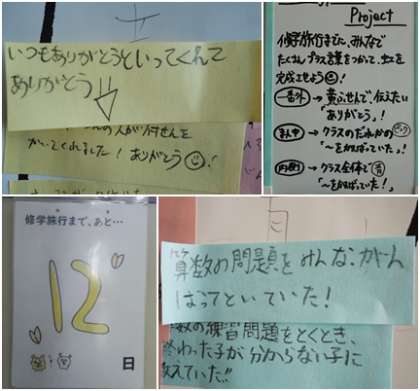 いつもありがとうといってくれて
ありがとう
んの人が付せんを
かいてくれました！ありがとう
Project
修学旅行までに、みんなで
たくさんプラス言葉をつかって、虹を
完成させよう
一番外→黄ふせんで、伝えたい
「ありがとう」！
まん中→クラスのだれかの
「〜をがんばっていた！」
内側→クラス全体で
「〜をがんばっていた！」
修学旅行まで、あと…
12
日
算数の問題をみんながん
ばってといていた！
数の練習問題をとくとき、
終わった子が分からない子に
教えていた!!